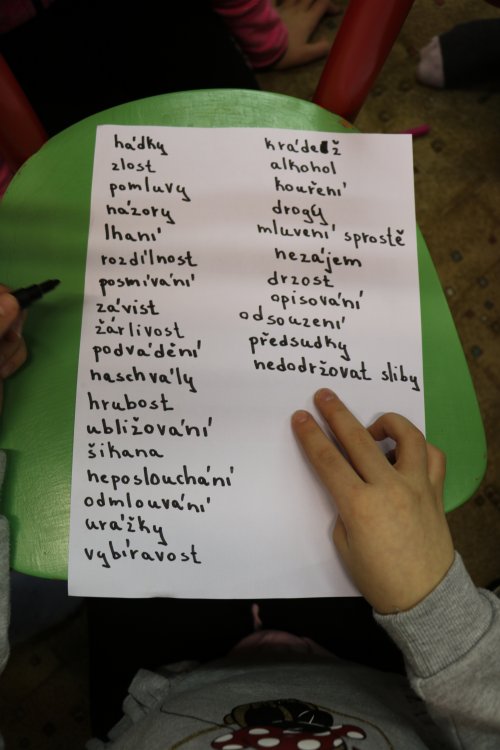 hádky
zlost
pomluvy
názory
lhaní
rozdílnost
posmívání
závist
žárlivost
podvádění
naschvály
hrubost
ubližování
šikana
neposlouchání
odmlouvání
urážky
vybíravost
krádež
alkohol
kouření
drogy
mluvení sprostě
nezájem
drzost
opisování
odsouzení
předsudky
nedodržovat sliby